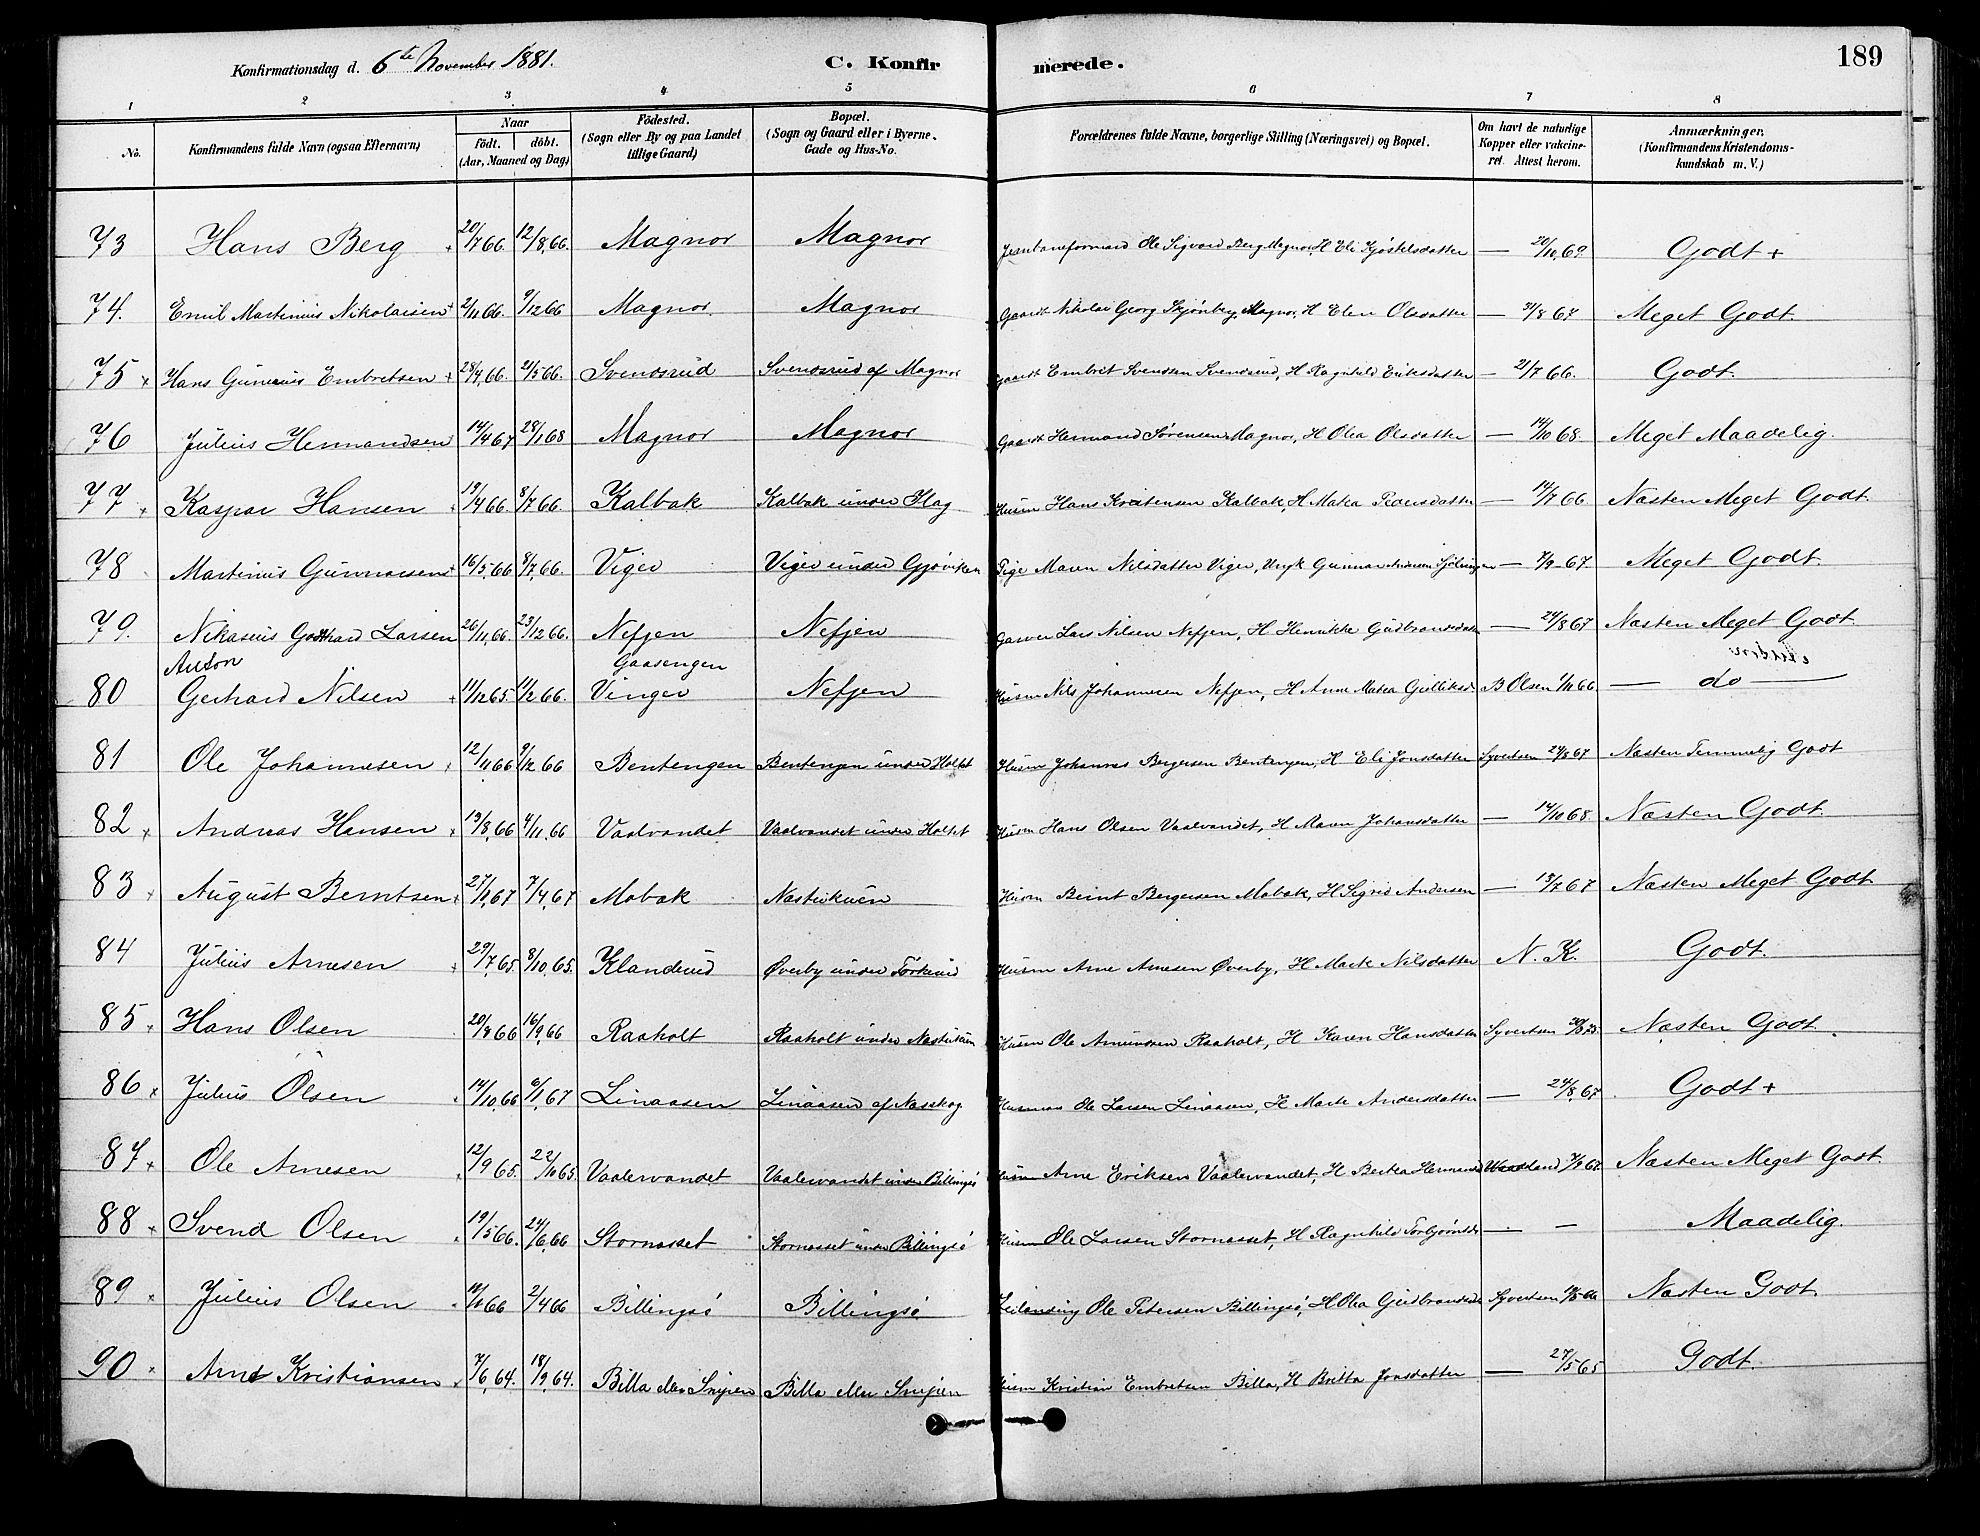 189
Konfirmationsdag d. 6te November 1881. C. Konfirmerede.
1 2 3 4 5 6 7 8
No. Konfirmandens fulde Navn (ogsaa Efternavn) Naar födt. döbt. (Aar, Maaned og Dag) Födested. (Sogn eller By og paa Landet tillige Gaard) Bopæl. (Sogn og Gaard eller i Byerne. Gade og Hus-No. Forældrenes fulde Navne, borgerlige Stilling (Næringsvei) og Bopæl. Om havt de naturlige Kopper eller vakcineret. Attest herom. Anmærkninger. (Konfirmandens Kristendomskundskab m. V.)
73 Hans Berg 20/7 66. 12/8, 66. Magnor Magnor Ole Sigvard Berg Magnor, H Eli Kjöstelsdatter — 20/10, 69. Godt +
74. Emil Martinius Nikolaisen 2/11 66. 9/12 66 Magnor Magnor Gaardt Nikolai Georg Skjönberg, Magnor, H Elen Olsdatter — 31/8 67 Meget Godt.
75 Hans Gunerius Embretsen 28/4, 66. 21/5 66. Svendsrud Svendsrud af Magnor Gaardt Embret Svendsen Svendsrud, H Ragnhild Eriksdatter — 21/7 66. Godt.
76 Julius Hermandsen 14/4 67 28/1 68 Magnor Magnor Gaardt Hermand Sørensen Magnor, H Olea Olsdatter — 14/10 68. Meget Maadelig.
77 Kaspar Hansen 19/4 66. 8/7 66. Kalbak Kalbak under Hag Husm Hans Kristensen Kalbak, H Matea — 14/7 66 Næsten Meget Godt.
78 Martinius Gunnarsen 16/5, 66 8/7, 66. Viger Viger under Gjøviken Pige Maren Nilsdatter Viger, Ungk Gunnar Andersen — 7/9 67. Meget Godt.
79. Nikasius Gotthard Larsen 26/11, 66. 23/12 66. Nefjen Nefjen Garver Lars Nilsen Nefjen, H Henrikke Gudbrandsdatter — 24/8 67 Næsten Meget Godt.
Anton Gaasengen
80 Gerhard Nilsen 11/12 65. 11/2 66. Vinger Nefjen Husm Nils Johannesen Nefjen, H Anne Matea Gulliksd. B Olsen 1/11 66. — do —
81 Ole Johannesen 12/11 66 9/12 66 Bentengen Bentengen under Holtet Husm Johannes Bergersen Bentengen, H Eli Jonsdatter Syvertsen 24/8 67 Næsten Temmelig Godt
82 Andreas Hansen 19/8, 66 4/11, 66 Vaalvandet Vaalvandet under Holtet Husm Hans Olsen Vaalvandet, H Maren Johansdatter — 14/10 68. Næsten Godt.
83 August Berntsen 27/1, 67 7/4, 67 Mobak Næstikuen Husm Bernt Bergersen Mobak, H Sigrid Andersen — 13/7 67 Næsten Meget Godt
84 Julius Arnesen 29/7, 65. 8/10, 65. Klanderud Øverby under Torkerud Husm Arne Arnesen Øverby, H Marte Nilsdatter N. K. Godt.
85 Hans Olsen 20/8 66 16/9, 66 Raaholt Raaholt under Næstikuen Husm Ole Amundsen Raaholt, H Karen Hansdatter Syvertsen Næsten Godt.
86 Julius Olsen 14/10, 66 6/1, 67 Linaasen Linaasen af Næsskog Husmas Ole Larsen Linaasen, H Marte Andersdatter — 24/8, 67. Godt +
87 Ole Arnesen 12/9 65. 22/10 65. Vaalervandet Vaalervandet under Billingsö Husm Arne Eriksen Vaalervandet, H Bertea Hermandsd 7/9 67. Næsten Meget Godt.
88 Svend Olsen 19/5 66. 24/6, 66 Stornæsset Stornæsset under Billingsö Husm Ole Larsen Stornæsset, H Ragnhild Torbjörnsd. — — Maadelig.
89 Julius Olsen 2/4 66 Billingsö Billingsö Leilænding Ole Petersen Billingsö, H Olea Gudbrandsd Syvertsen Næsten Godt.
90 Arne Kristiansen 7/6, 64. 18/9, 64. Billa eller Snipen Billa eller Snipen Husm Kristian Embretsen Billa, H Britta Jonsdatter — 27/5 65 Godt.